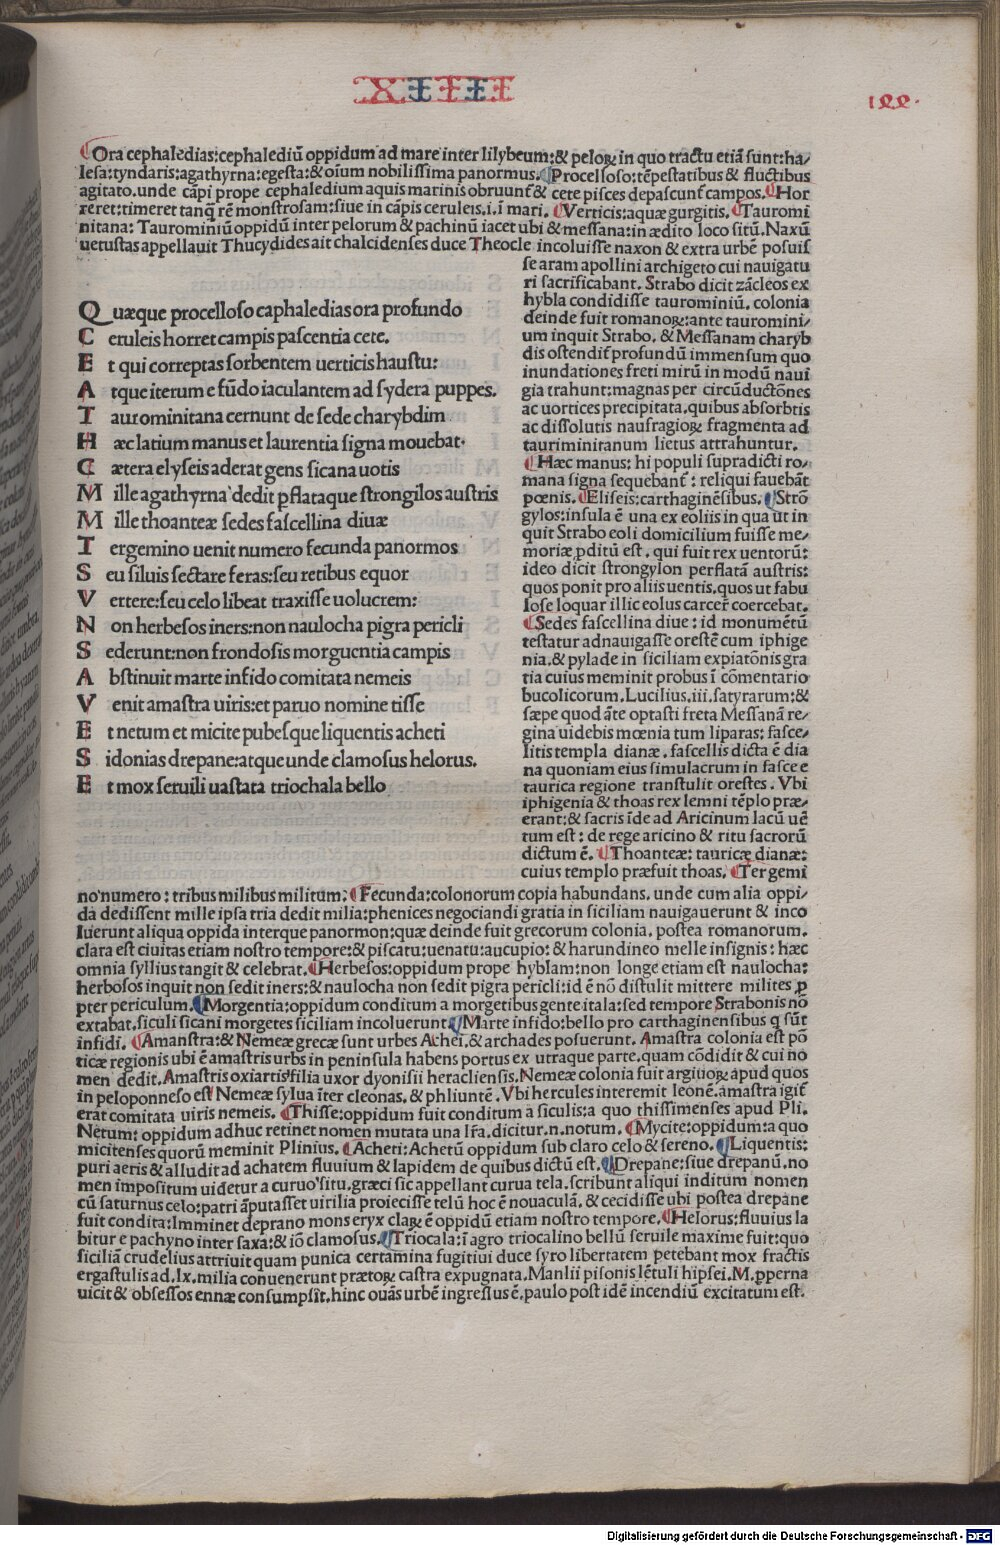 XIIII
122.
Ora cephaledias:cephalediū oppidum ad mare inter lilybeum:& peloꝝ in quo tractu etiā sunt:ha⸗
lesa:tyndaris:agathyrna:egesta:& oīum nobilissima panormus. Procelloso:tēpestatibus & fluctibus
agitato.unde cāpi prope cephaledium aquis marinis obruunt̄ & cete pisces depascunt̄ campos. Hor
reret:timeret tanq̄ rē monstrosam:siue in cāpis ceruleis.i.ī mari. Verticis:aquæ gurgitis. Tauromi
nitana: Taurominiū oppidū inter pelorum & pachinū iacet ubi & messana:in ædito loco sitū. Naxū
uetustas appellauit Thucydides ait chalcidenses duce Theocle incoluisse naxon & extra urbē posuis
se aram apollini archigeto cui nauigatu
ri sacrificabant. Strabo dicit zācleos ex
hybla condidisse taurominiū. colonia
deinde fuit romanoꝝ:ante tauromini⸗
um inquit Strabo. & Messanam charyb
dis ostendit̄ profundū immensum quo
inundationes freti mirū in modū naui
gia trahunt:magnas per circūductōnes
ac uortices precipitata.quibus absorbtis
ac dissolutis naufragioꝝ fragmenta ad
tauriminitanum lictus attrahuntur.
Hæc manus: hi populi supradicti ro⸗
mana signa sequebant̄ : reliqui fauebāt
pœnis. Eliseis:carthaginēsibus. Strō
gylos:insula ē una ex eoliis in qua ut in
quit Strabo eoli domicilium fuisse me⸗
moriæ ꝓditū est. qui fuit rex uentorū:
ideo dicit strongylon perflatā austris:
quos ponit pro aliis uentis.quos ut fabu
lose loquar illic eolus carcer̄ coercebat.
Sedes fascellina diue : id monumētū
testatur adnauigasse orestē cum iphige
nia.& pylade in siciliam expiatōnis gra
tia cuius meminit probus ī cōmentario
bucolicorum. Lucilius.iii.satyrarum:&
sæpe quod āte optasti freta Messanā re⸗
gina uidebis mœnia tum liparas: fasce⸗
litis templa dianæ. fascellis dicta ē dia
na quoniam eius simulacrum in fasce e
taurica regione transtulit orestes. Vbi
iphigenia & thoas rex lemni tēplo præ⸗
erant:& sacris īde ad Aricinum lacū uē
tum est : de rege aricino & ritu sacrorū
dictum ē. Thoanteæ: tauricæ dianæ:
cuius templo præfuit thoas. Tergemi
Quæque procelloso caphaledias ora profundo
Ceruleis horret campis pascentia cete.
Et qui correptas sorbentem uerticis haustu:
Atque iterum e fūdo iaculantem ad sydera puppes.
Taurominitana cernunt de sede charybdim
Hæc latium manus et laurentia signa mouebat.
Cætera elyseis aderat gens sicana uotis
Mille agathyrna dedit ꝑflataque strongilos austris
Mille thoanteæ sedes fascellina diuæ
Tergemino uenit numero fecunda panormos
Seu siluis sectare feras:seu retibus equor
Vertere:seu celo libeat traxisse uolucrem:
Non herbesos iners:non naulocha pigra pericli
Sederunt:non frondosis morguentia campis
Abstinuit marte infido comitata nemeis
Venit amastra uiris:et paruo nomine tisse
Et netum et micite pubesque liquentis acheti
Sidonias drepane:atque unde clamosus helorus.
Et mox seruili uastata triochala bello
no numero : tribus milibus militum: Fecunda:colonorum copia habundans. unde cum alia oppi⸗
da dedissent mille ipsa tria dedit milia:phenices negociandi gratia in siciliam nauigauerunt & inco
luerunt aliqua oppida interque panormon:quæ deinde fuit grecorum colonia. postea romanorum.
clara est ciuitas etiam nostro tempore:& piscatu:uenatu:aucupio: & harundineo melle insignis : hæc
omnia syllius tangit & celebrat. Herbesos:oppidum prope hyblam:non longe etiam est naulocha:
herbosos inquit non sedit iners:& naulocha non sedit pigra pericli:id ē nō distulit mittere milites ꝓ
pter periculum. Morgentia:oppidum conditum a morgetibus gente itala:sed tempore Strabonis nō
extabat.siculi sicani morgetes siciliam incoluerunt. Marte infido:bello pro carthaginensibus q̄ sūt
infidi. Amanstra:& Nemeæ grecæ sunt urbes Achei.& archades posuerunt. Amastra colonia est pō
ticæ regionis ubi ē amastris urbs in peninsula habens portus ex utraque parte.quam cōdidit & cui no
men dedit.Amastris oxiartis filia uxor dyonisii heracliensis.Nemeæ colonia fuit argiuoꝝ apud quos
in peloponneso est Nemeæ sylua īter cleonas.& phliuntē.Vbi hercules interemit leonē.amastra igit̄
erat comitata uiris nemeis. Thisse:oppidum fuit conditum a siculis:a quo thissimenses apud Pli.
Netum: oppidum adhuc retinet nomen mutata una lr̄a.dicitur.n.notum. Mycite:oppidum:a quo
micitenses quorū meminit Plinius. Acheti:Achetū oppidum sub claro celo & sereno. Liquentis:
puri aeris & alludit ad achatem fluuium & lapidem de quibus dictū est. Drepane:siue drepanū.no
men impositum uidetur a curuo situ.græci sic appellant curua tela.scribunt aliqui inditum nomen
cū saturnus celo:patri āputasset uirilia proiecisse telū hoc ē nouaculā.& cecidisse ubi postea drepane
fuit condita:Imminet deprano mons eryx claꝝ ē oppidū etiam nostro tempore. Helorus:fluuius la
bitur e pachyno inter saxa:& iō clamosus. Triocala:ī agro triocalino bellū seruile maxime fuit:quo
siciliā crudelius attriuit quam punica certamina fugitiui duce syro libertatem petebant mox fractis
ergastulis ad.lx.milia conuenerunt prætoꝝ castra expugnata.Manlii pisonis lētuli hipsei.M.ꝑperna
uicit & obsessos ennæ consumpsit̄.hinc ouās urbē ingressus ē.paulo post idē incendiū excitatum est.
Digitalisierung gefördert durch die Deutsche Forschungsgemeinschaft - DFG